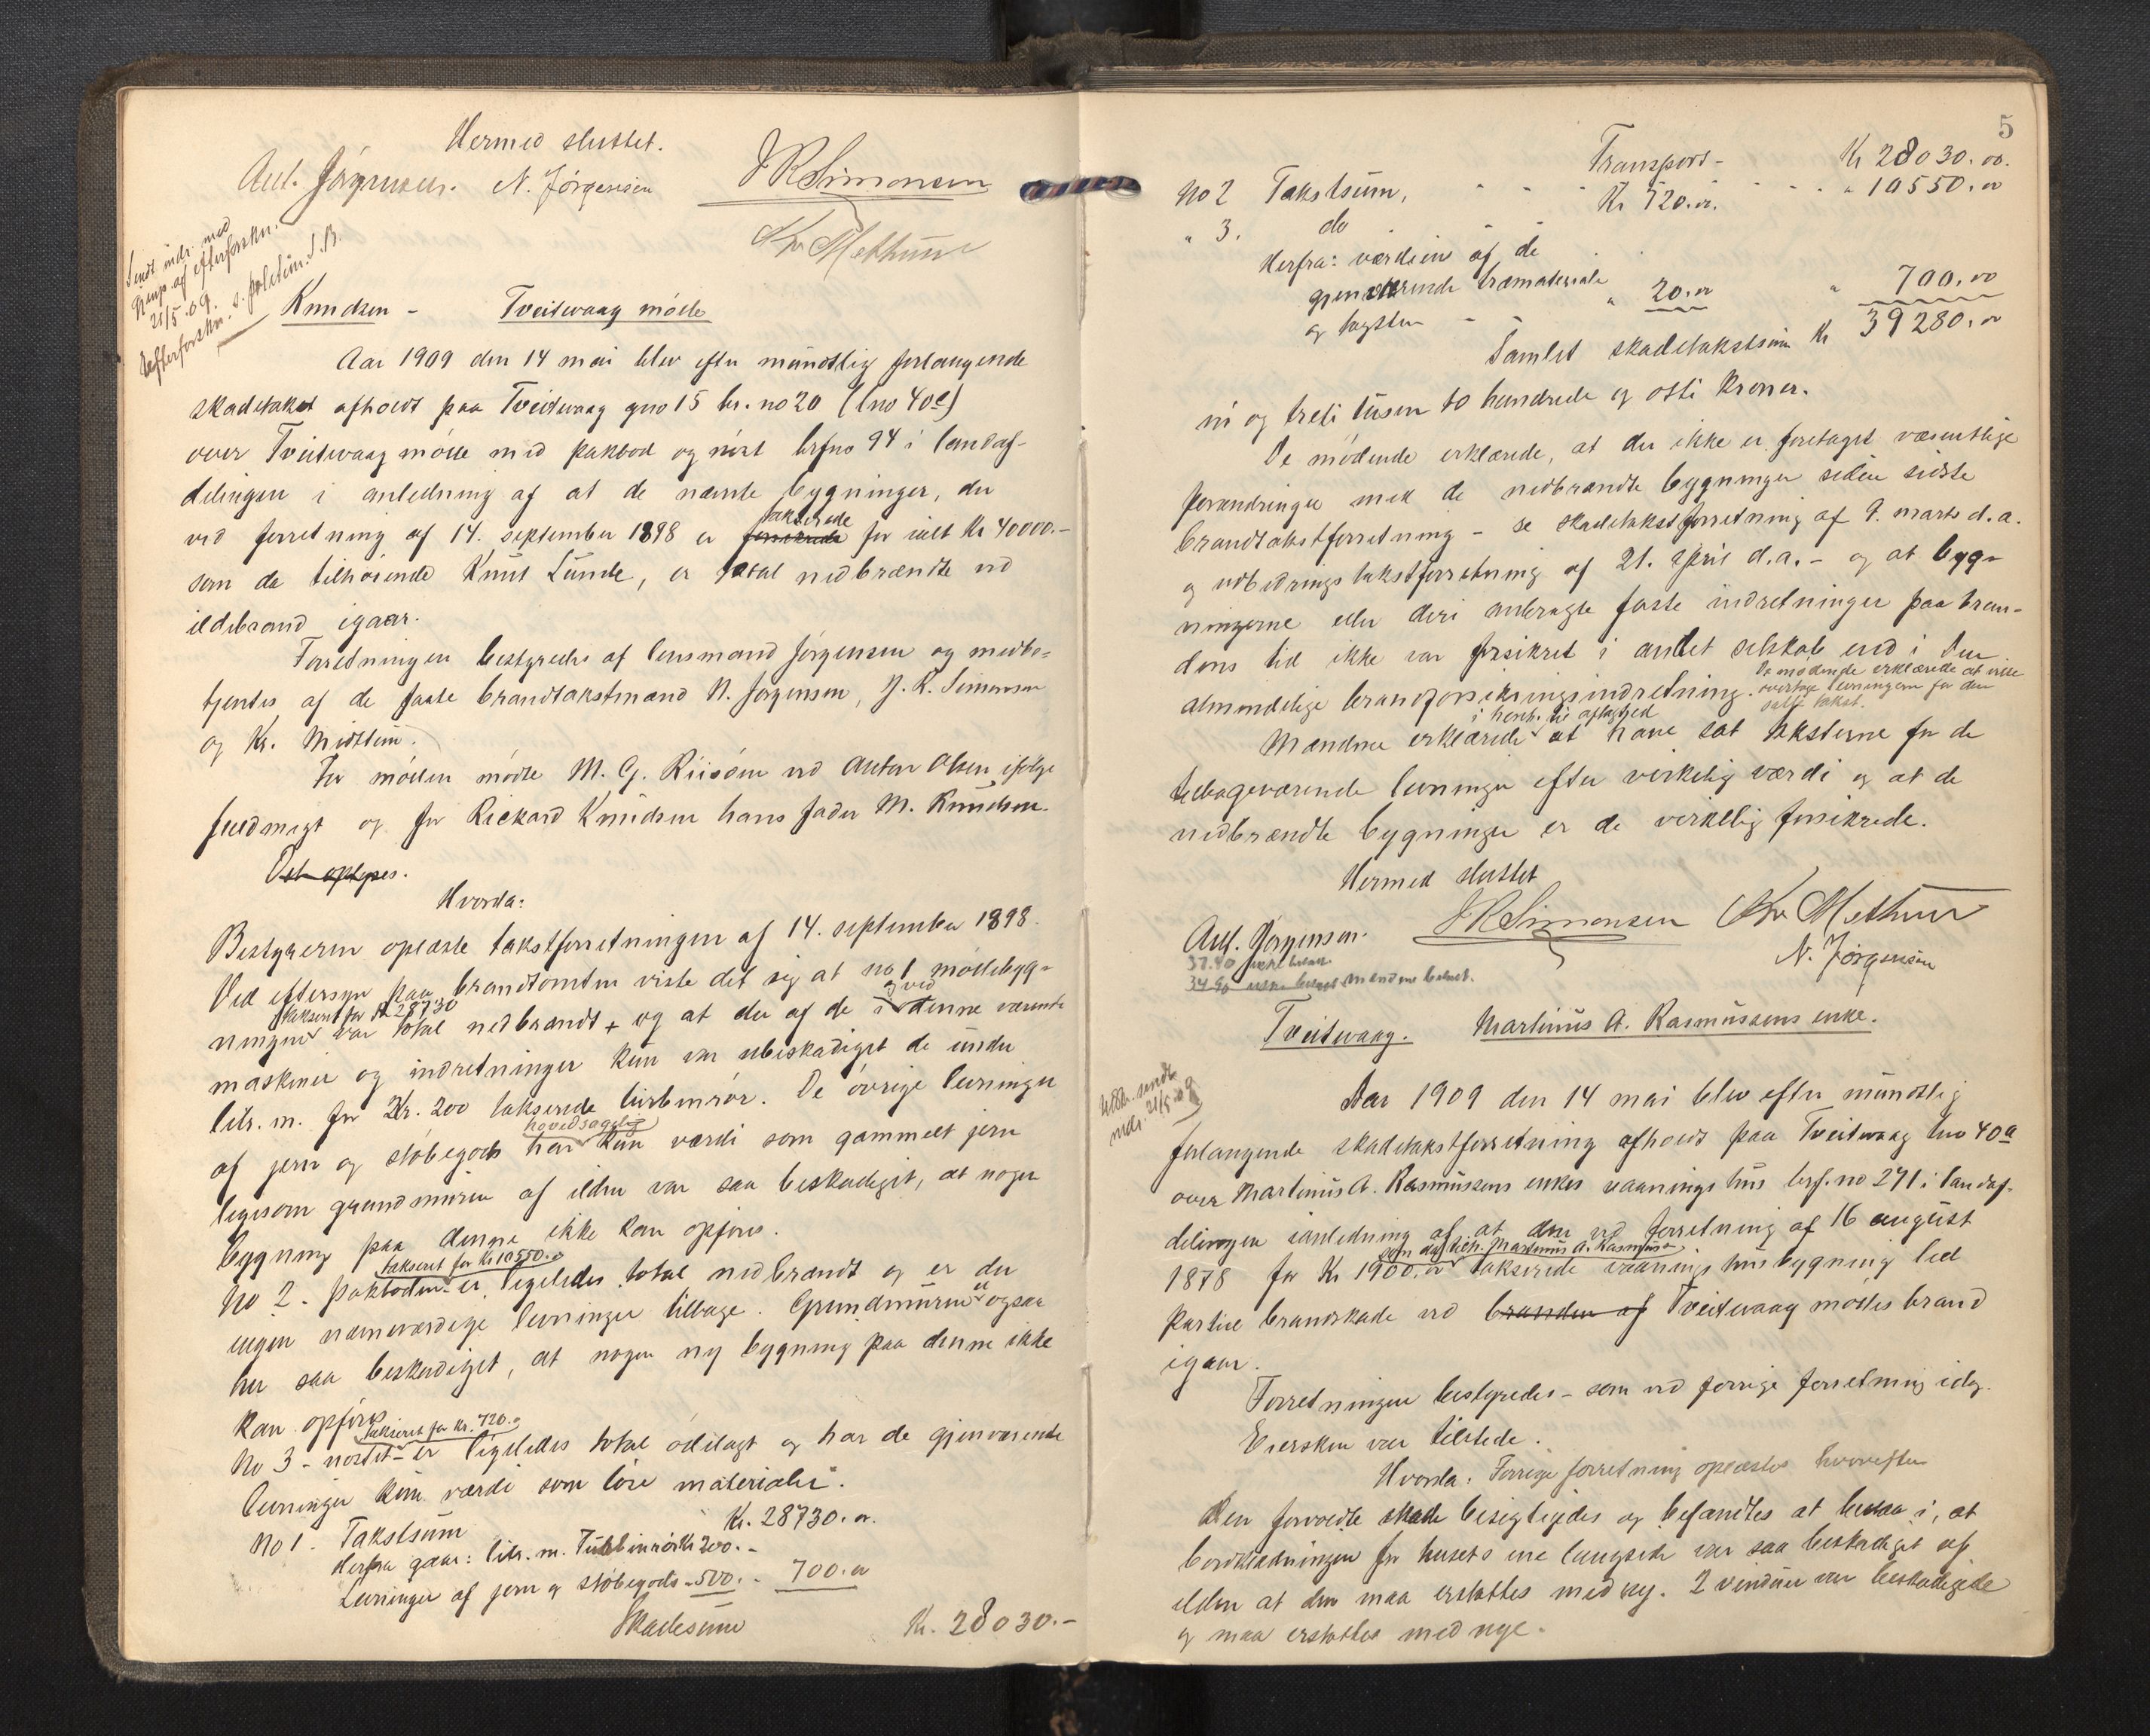 Hermed sluttet.
Ant. Jörgensen. N. Jörgensen JRSimonsen
Kr Methun
Sendt indr. med
21/5 09.
Knudsen - Tveitwaag mölle
Aar 1909 den 14 mai blev efter mundtlig forlangende
skadetakst afholdt paa Tveitwaag gno 15 br. no 20 (lno 40c)
over Tveitwaag mölle med pakbod og nöst brfno 94 i landaf-
delingen i anledning af at de nævnte bygninger, der
ved forretning af 14. september 1898 er forsikrede takserede for ialt Kr 40000.-
som da tilhörende Knut Lunde, er total nedbrændte ved
ildebrand igaar.
Forretningen bestyredes af lensmand Jörgensen og medbe-
tjentes af de faste brandtakstmænd N. Jörgensen, J. R. Simonsen
og Kr. Midttun.
For möllen mödte M. G. Riisöen ved Anton Olsen ifölge
fuldmagt og for Rickard Knudsen hans fader M. Knudsen.
Det oplyses.
Hvorda:
Bestyreren oplæste takstforretningen af 14. september 1898.
Ved eftersyn paa brandtomten viste det sig at no 1 möllebyg-
ningen taksert for Kr 28730 var total nedbrændt + og at der af de i og ved denne værende
maskiner og indretninger kun var ubeskadiget de under
litr. m. for Kr. 200 takserede turbinrör. De övrige levninger
af jern og stöbegods har hovedsagelig kun værdi som gammelt jern
ligesom grundmuren af ilden var saa beskadiget, at nogen
bygning paa denne ikke kan opföres.
No 2 - pakboden - taksert for Kr 10550.00 er ligeledes total nedbrændt og er der
ingen nævneværdige levninger tilbage. Grundmuren er ogsaa
her saa beskadiget, at nogen ny bygning paa denne ikke
kan opföres
No 3 - nöstet - taksert for Kr. 720.- er ligeledes total ödelagt og har de gjenværende
levninger kun værdi som löse materialer.
No 1. Takstsum Kr. 28730.00.
Herfra gaar: litr. m. Turbinrör Kr 200.-
Levninger af jern og stöbegods - 500.- 700.00
Skadesum Kr. 28030.-
5
Transport - Kr 28030.00.
No 2 Takstsum, - - - - - - " 10550.00
" 3. do - - Kr 720.00.
Herfra: værdien af de
gjenværende træmateriale
og tagsten - - " 20.00 " 700.00
Samlet skadetakstsum Kr 39280.00
ni og treti tusen to hundrede og otti kroner.
De mödende erklærede, at der ikke er foretaget væsentlige
forandringer med de nedbrændte bygninger siden sidste
brandtakstforretning - se skadetakstforretning af 9. marts d.a.
og udbedringstakstforretning af 21. april d.a. - og at byg-
ningerne eller deri anbragte faste indretninger paa bran-
dens tid ikke var forsikret i andet selskab end i Den
almindelige brandforsikringsindretning. De mödende erklærede at ville
overtage levningerne for den
satte takst.
Mændene erklærede i hensh. til aflagt ed at have sat taksterne for de
tilbageværende levninger efter virkelig værdi og at de
nedbrændte bygninger er de virkelig forsikrede.
Hermed sluttet
Ant. Jörgensen. JRSimonsen Kr Methun
N. Jörgensen
37.40 ikke betalt.
34.90 mændene betalt.
Tveitwaag. Martinus A. Rasmussens enke.
Utskr. sendt
indr. 21/5 09
Aar 1909 den 14 mai blev efter mundtlig
forlangende skadetakstforretning afholdt paa Tveitwaag lno 40a
over Martinus A. Rasmussens enkes vaaningshus brf. no 271 i landaf-
delingen i anledning af at den ved forretning af 16 august
1878 for Kr 1900.00 som da tilh. Martinus A. Rasmussen takserede vaaningshusbygning led
partiel brandskade ved branden af Tveitwaag mölles brand
igaar.
Forretningen bestyredes - som ved forrige forretning idag.
Eiersken var tilstede.
Hvorda: Forrige forretning oplæstes hvorefter
den forvoldte skade besigtigedes og befandtes at bestaa i, at
bordklædningen for husets ene langside var saa beskadiget af
ilden at den maa erstattes med ny. 2 vinduer var beskadigede
og maa erstattes med nye.